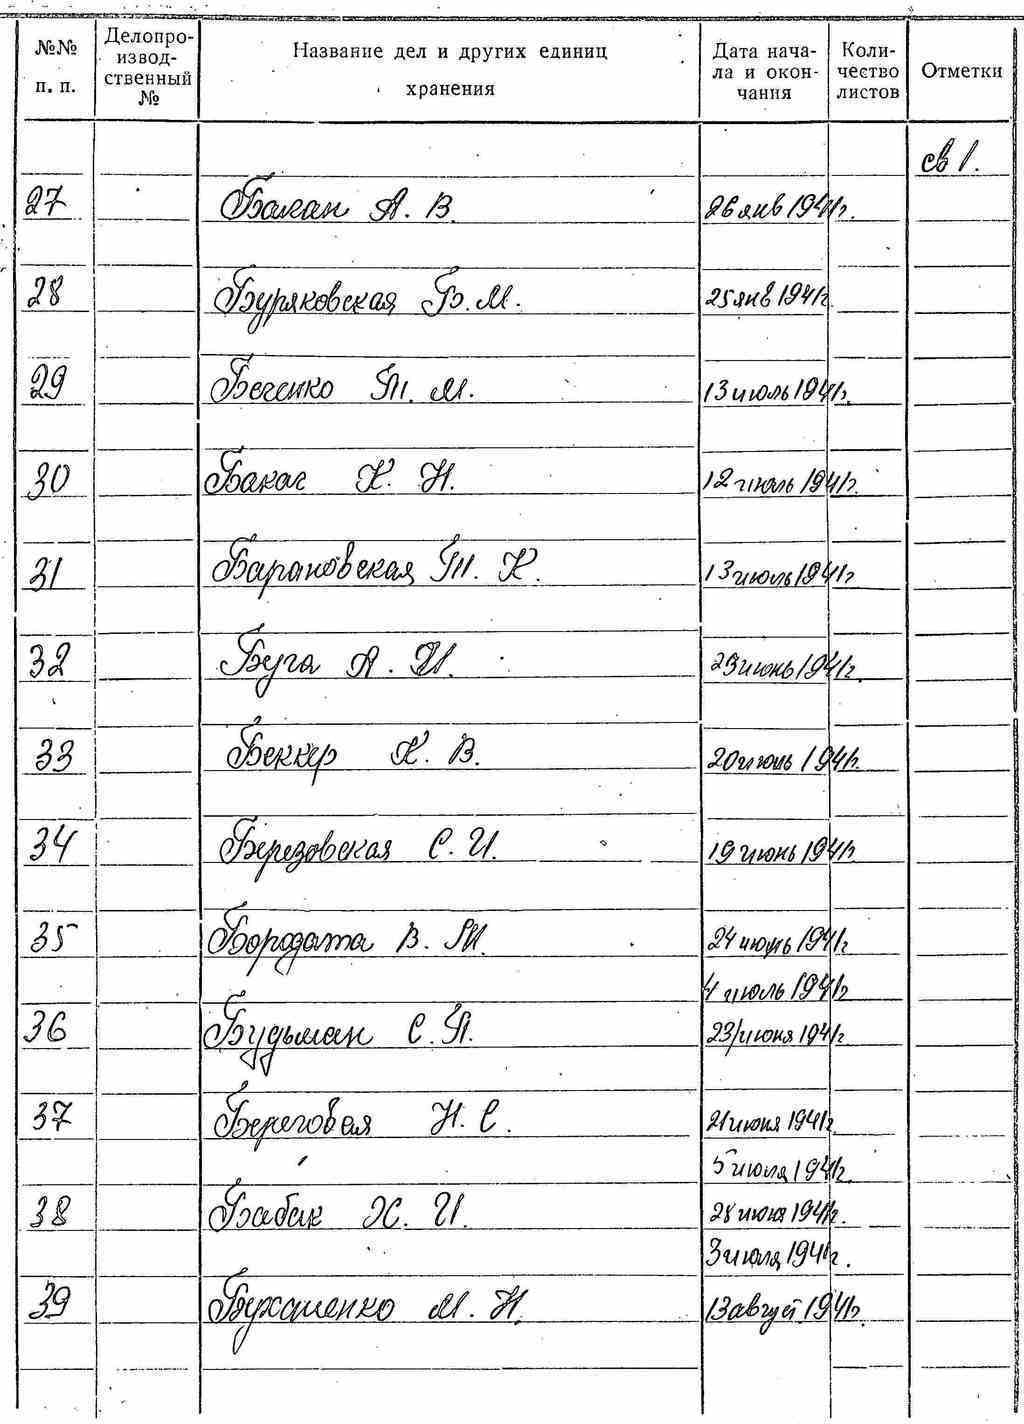 №№ п. п. Делопро-изводственный № Название дел и других единиц хранения Дата нача-ла и окон-чания Коли-чество листов Отметки
св 1.
27 Балан А. В. 26 янв 1941г.
28 Буряковская Б. М. 25 янв 1941г.
29 Беченко Т. М. 13 июль 1941г.
30 К. Н. 12 июль 1941г.
31 Барановская Т. К. 13 июль 1941г
32 Буга А. 29 июнь 1941г.
33 Беккер К. В. 20 1941г.
34 Березовская С. И. 19 июнь 1941г
35 Бородата В. М. 24 июнь 1941г
4 июль 1941г
36 Будьман С. П. 23 июня 1941г
37 Береговая Н. С. 21 июня 1941г.
5 июля 1941г.
38 Бабак Ж. И. 28 июня 1941г.
3 июля 1941г.
39 М. Н. 13 август 1941г.